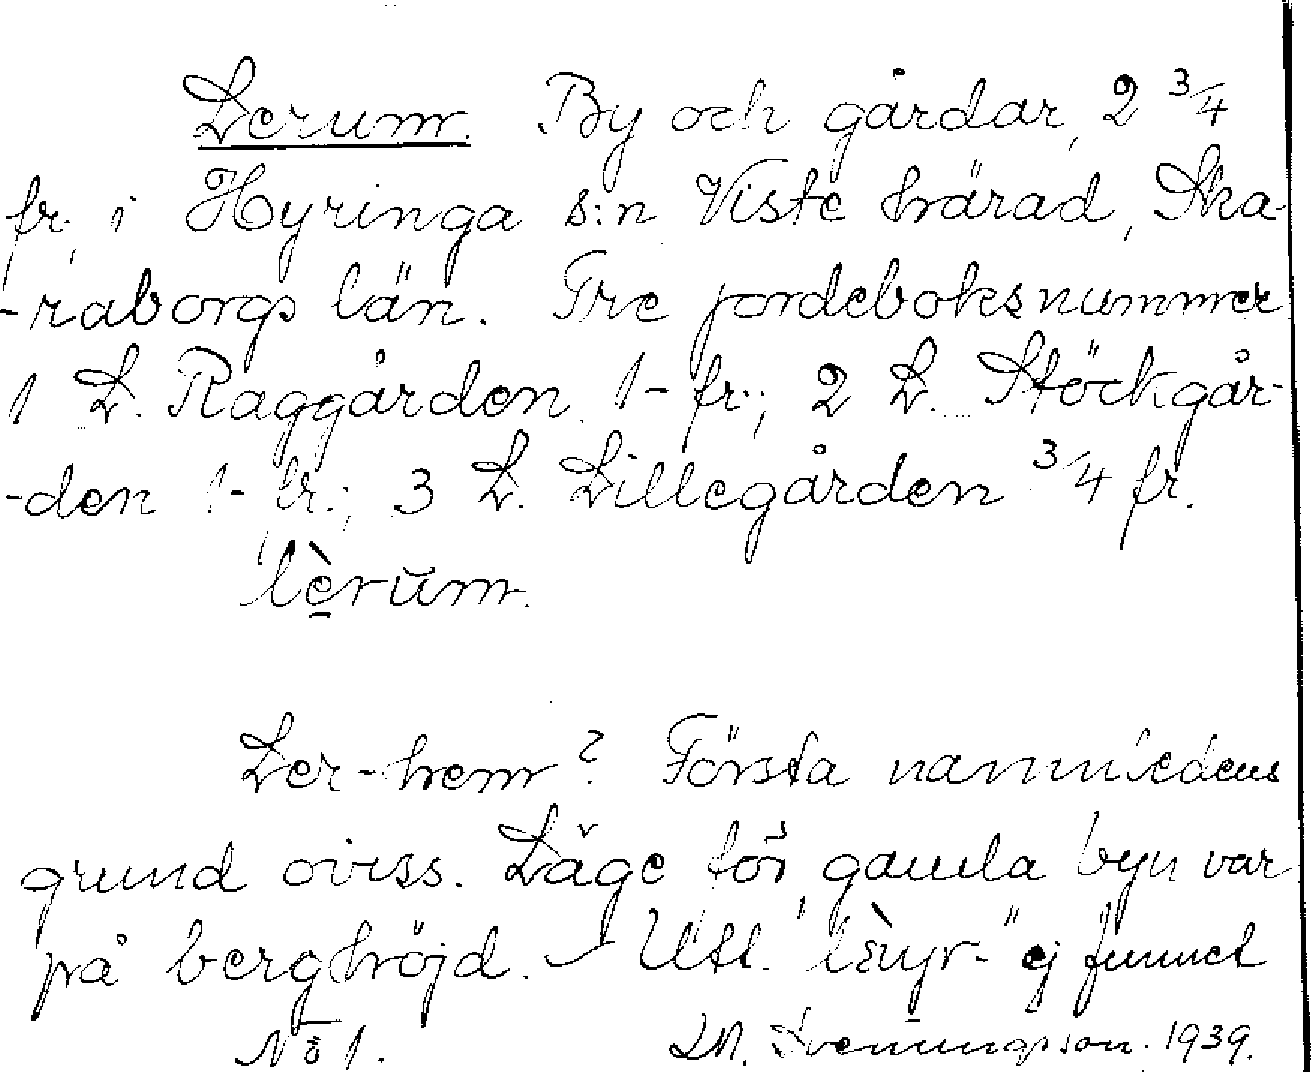 Lerum. By och gårdar, 2 3/4
fr. i Hyringa s:n Viste härad, Ska-
-raborgs län. Tre jordeboksnummer
1 L. Raggården 1- fr.; 2 L. Stöckgår-
-den 1- fr.; 3 L. Lillegården 3/4 fr.
lèrŭm.
Ler-hem? Första namnledens
grund oviss. Läge för gamla byn var
på berghöjd. - Utt. ej funnet
No 1. Svenungsson. 1939.